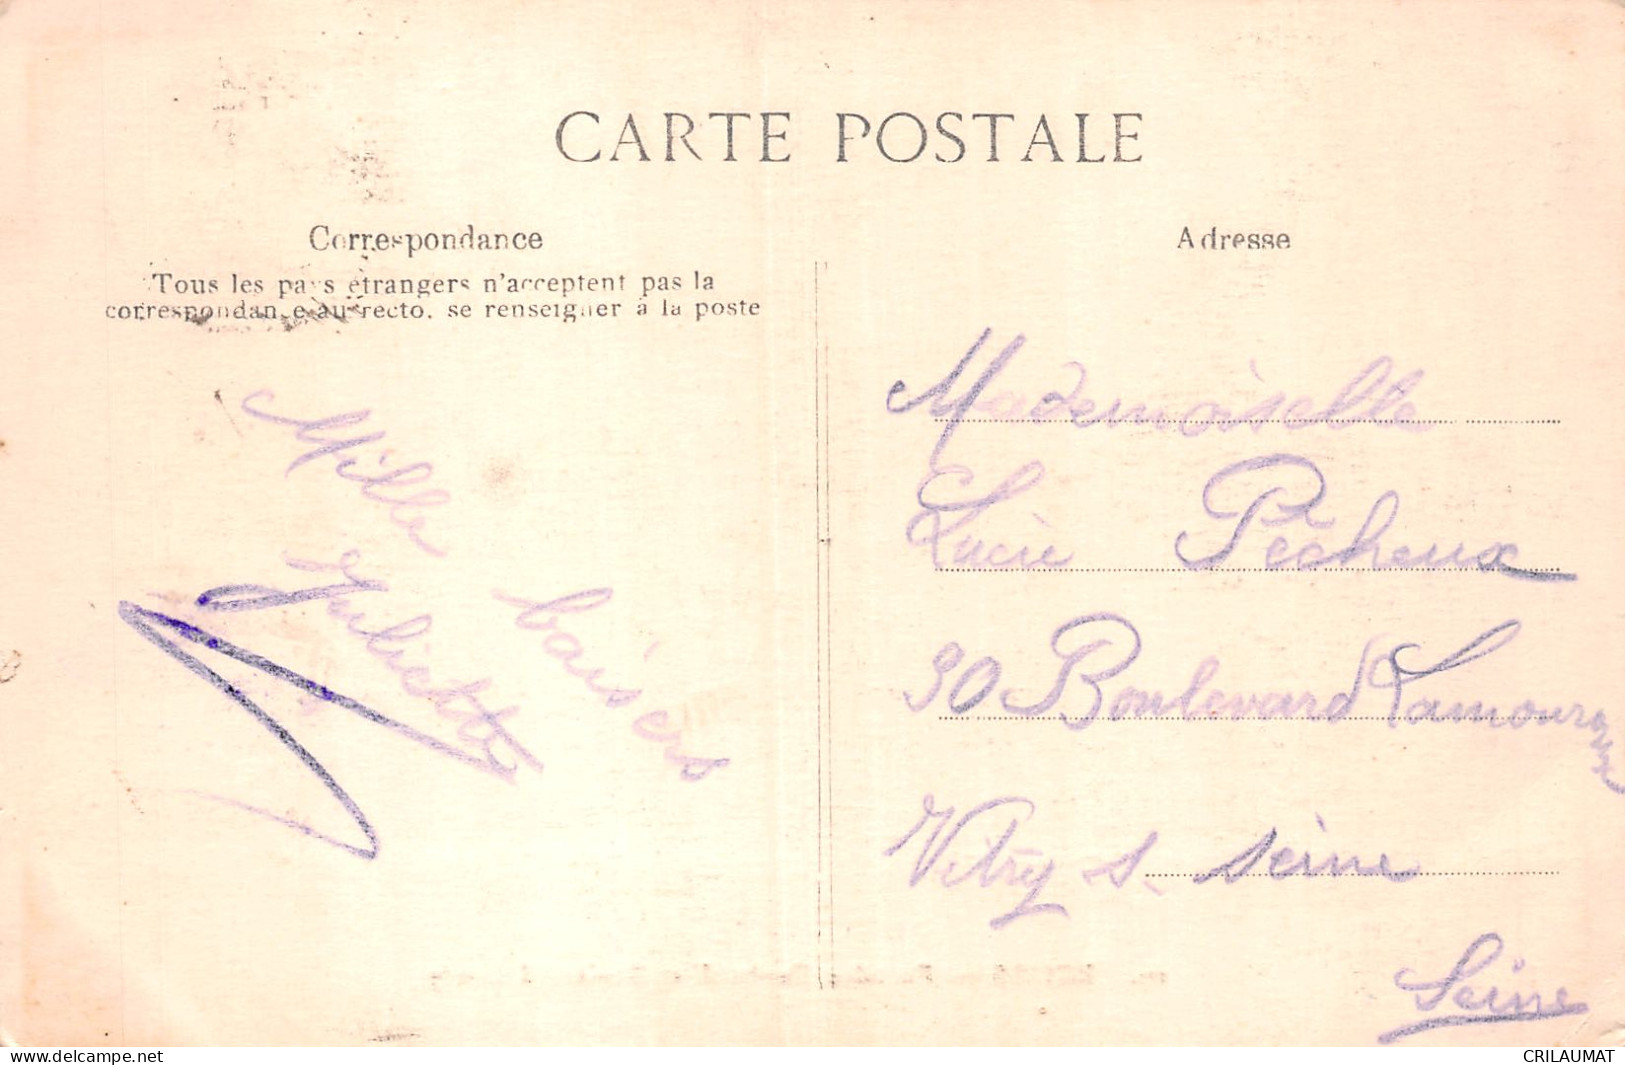 CARTE POSTALE
Correspondance
Tous les pays étrangers n'acceptent pas la
correspondance au recto, se renseigner à la poste
Mille baisers
Juliette
Adresse
Mademoiselle
Lucie Pècheux
90 Boulevard Lamouroux
Vitry s. Seine
Seine
www.delcampe.net
CRILAUMAT